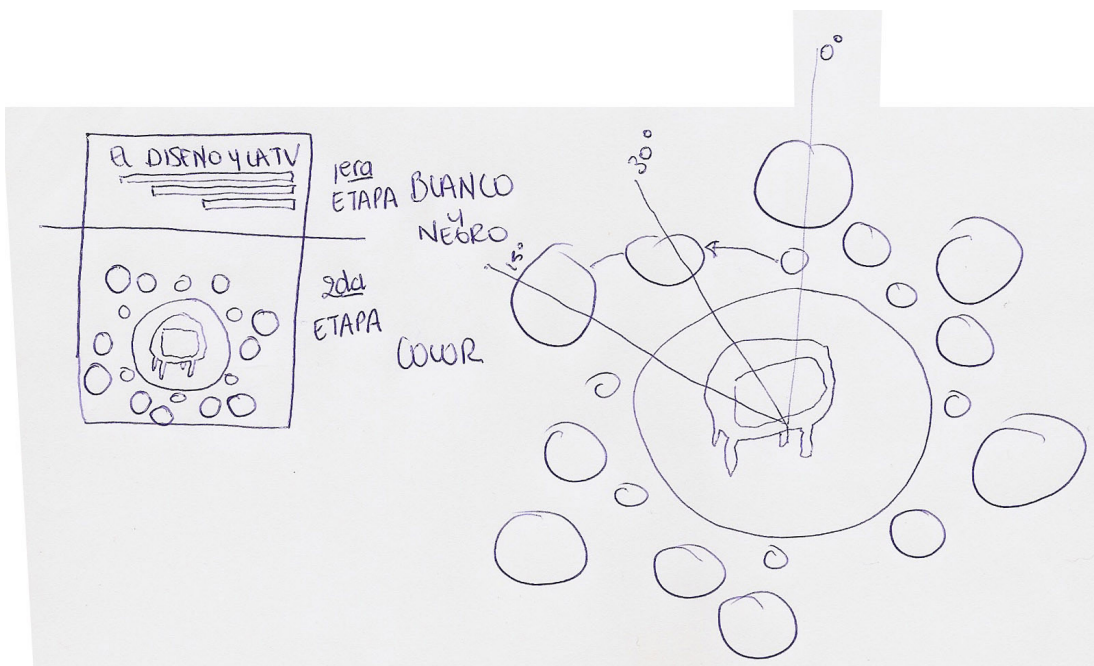 EL DISENO Y LA TV
1era
ETAPA BLANCO
y
NEGRO
2da
ETAPA
COLOR
0°
30°
15°